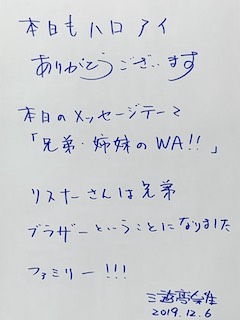 本日もハロアイ
ありがとうございます
本日のメッセージテーマ
「兄弟・姉妹のWA!!」
リスナーさんは兄弟
ブラザーということになりました
ファミリー!!!
三遊亭
2019.12.6